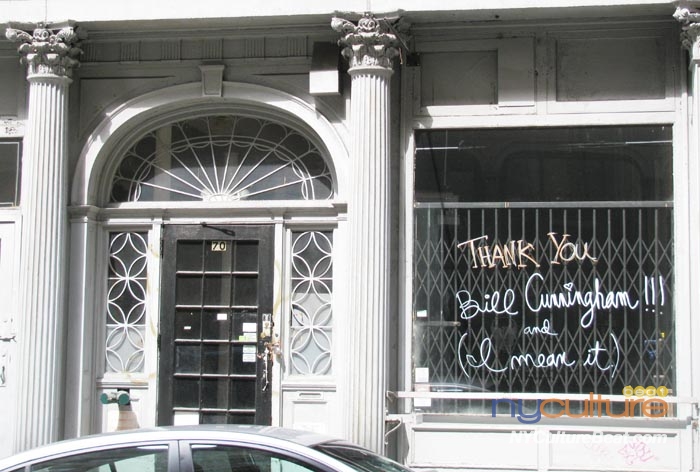 70
THANK YOU
Bill Cunningham!!!
and
(I mean it.)
beat
nyculture
NYCultureBeat.com